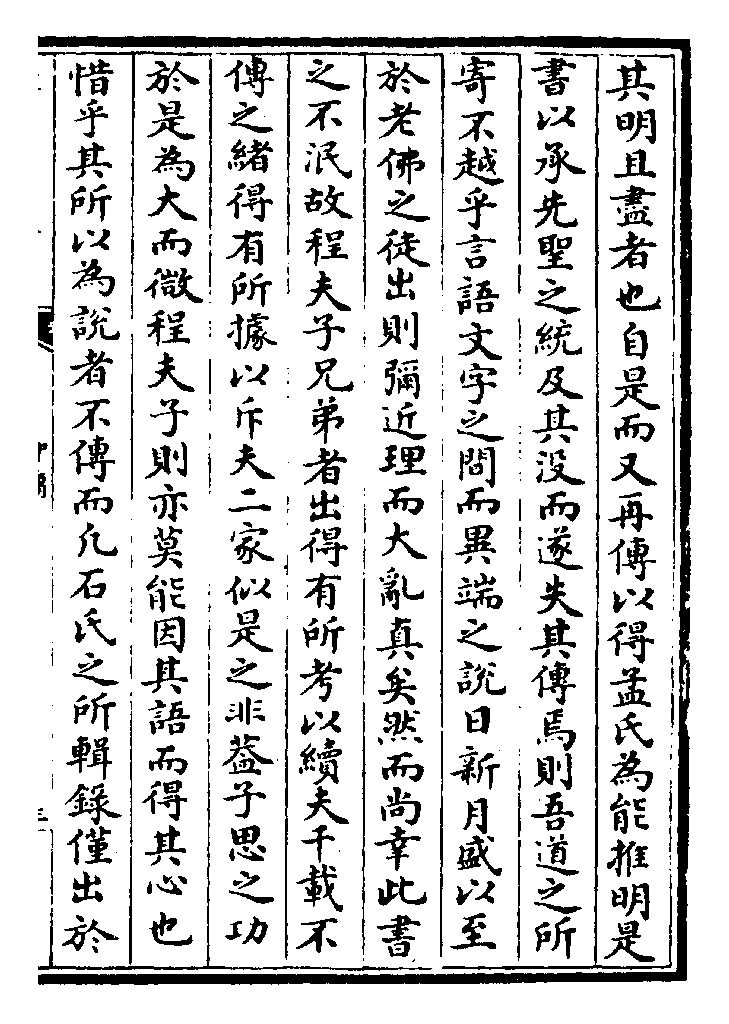 其明且盡者也自是而又再傳以得孟氏為能推明是
書以承先聖之統及其没而遂失其傳焉則吾道之所
寄不越乎言語文字之間而異端之說日新月盛以至
於老佛之徒出則彌近理而大亂真矣然而尚幸此書
之不泯故程夫子兄弟者出得有所考以續夫千載不
傳之緒得有所據以斥夫二家似是之非葢子思之功
於是為大而微程夫子則亦莫能因其語而得其心也
惜乎其所以為說者不傳而凡石氏之所輯錄僅出於